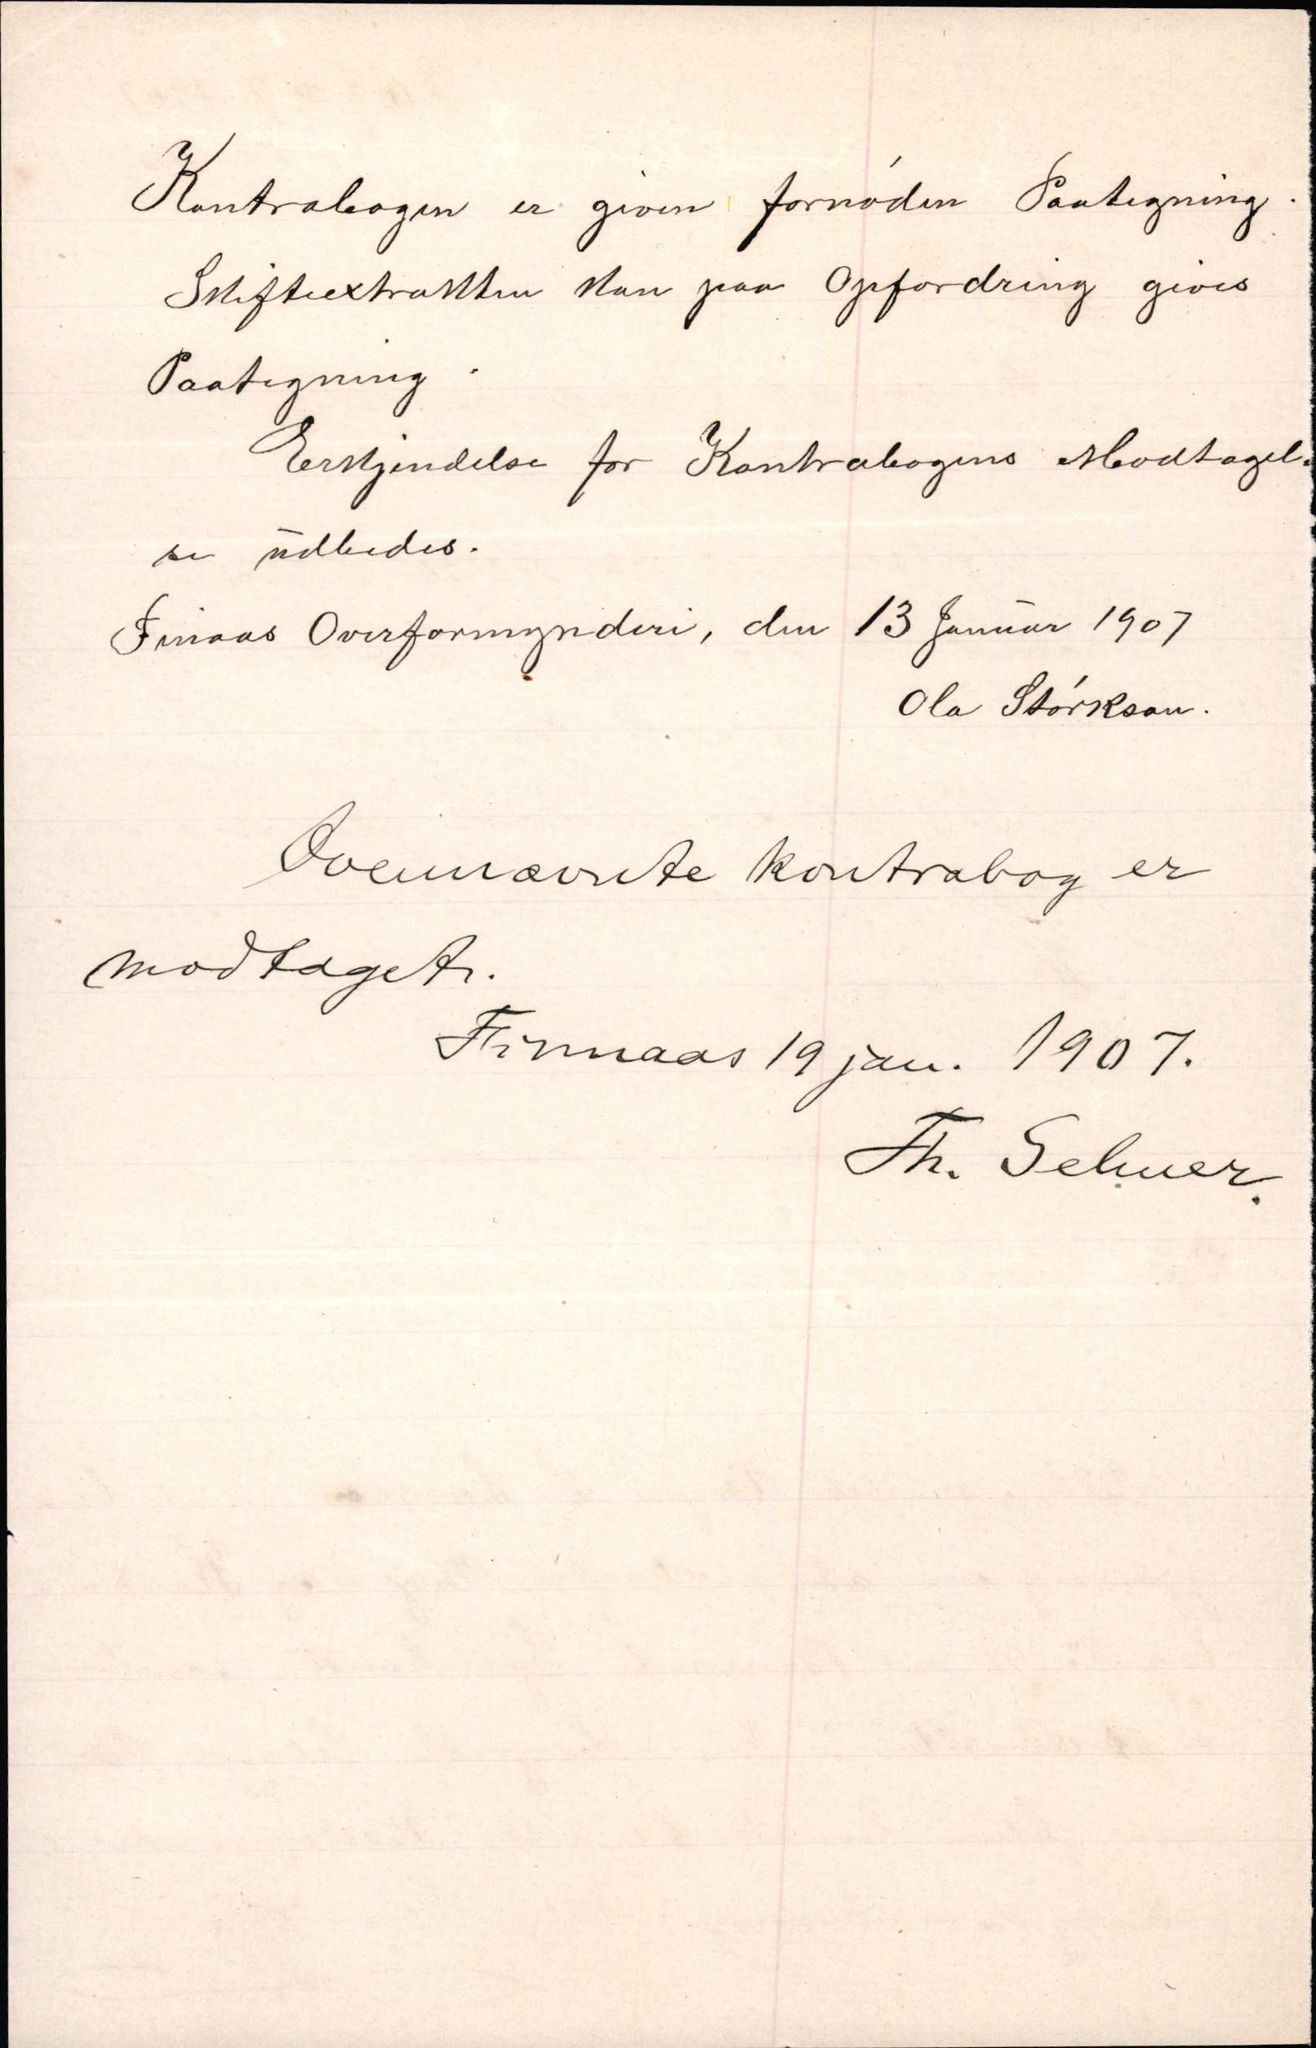 Kontrabogen er given fornøden Paategning.
Skifteextrakten kan paa Opfordring gives
Paategning.
Erkjendelse for Kontrabogens Modtagel-
se udbedes.
Finaas Overformynderi, den 13 Januar 1907
Ola Størkson.
Ovennævnte kontrabog er
modtaget.
Finnaas 19 jan. 1907.
Th. Selmer.